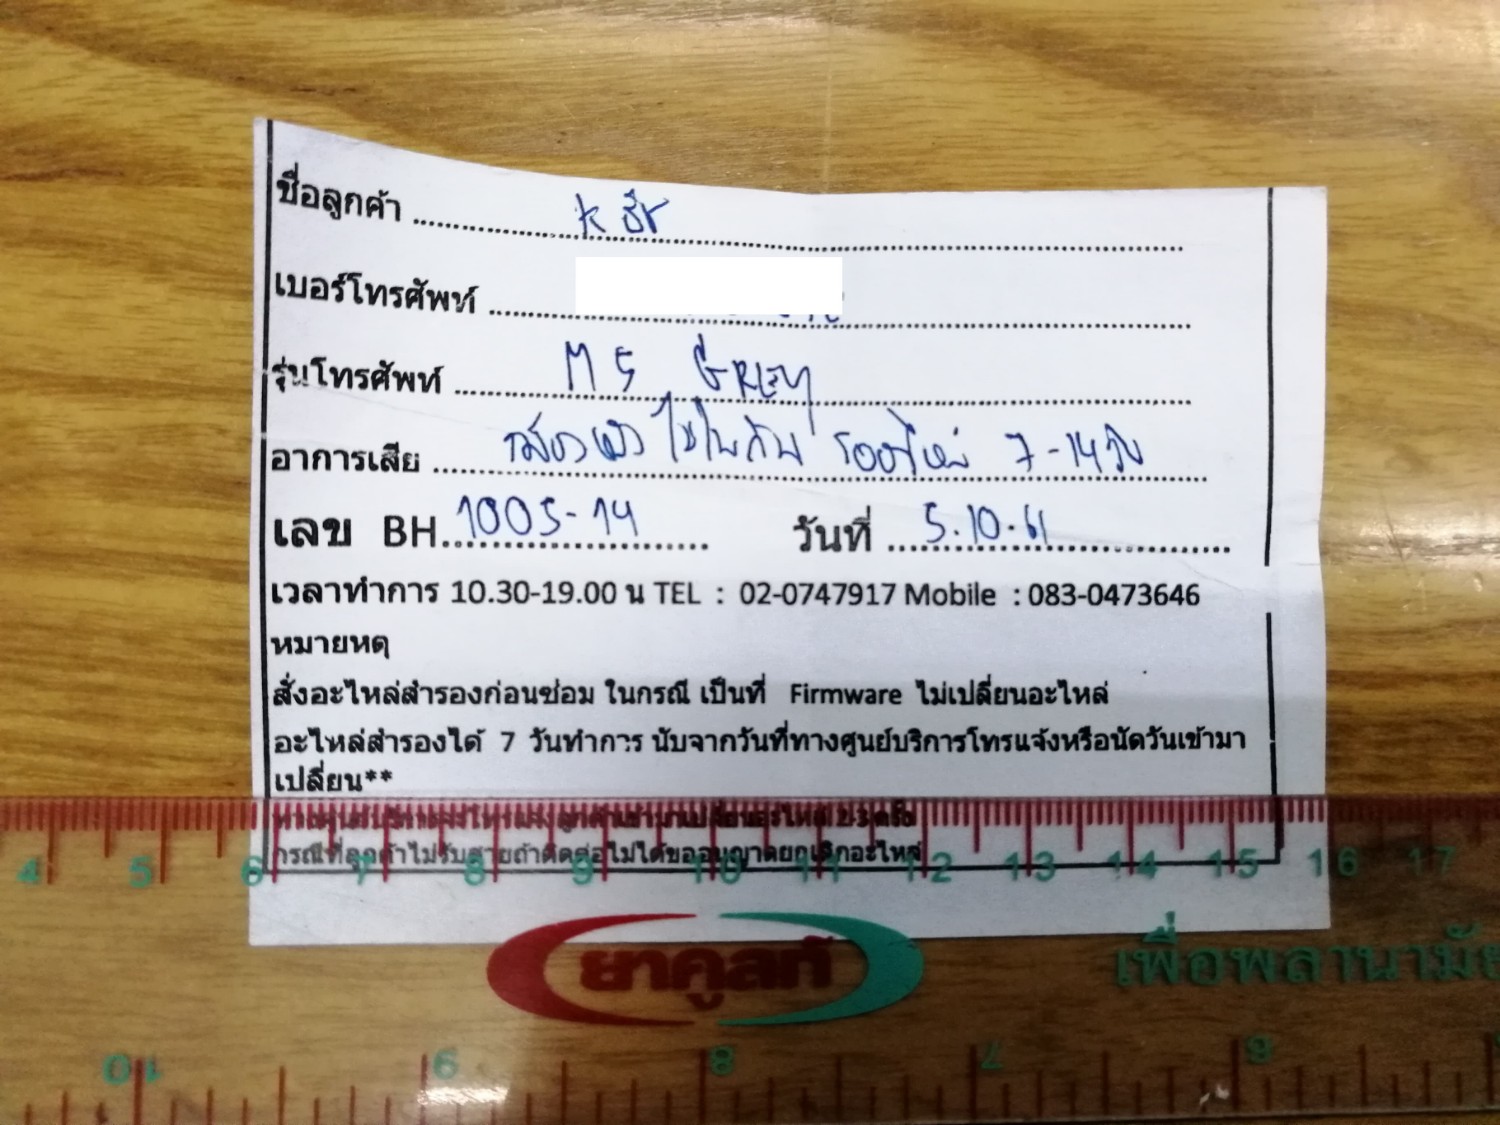 ชื่อลูกค้า ........ K
เบอร์โทรศัพท์ ........
รุ่นโทรศัพท์ ........ M5 GREY
อาการเสีย ........ รออะไหล่ 7-14 วัน
เลข BH 1005-14 วันที่ 5.10.61
เวลาทำการ 10.30-19.00 น TEL : 02-0747917 Mobile : 083-0473646
หมายเหตุ
สั่งอะไหล่สำรองก่อนซ่อม ในกรณี เป็นที่ Firmware ไม่เปลี่ยนอะไหล่
อะไหล่สำรองได้ 7 วันทำการ นับจากวันที่ทางศูนย์บริการโทรแจ้งหรือนัดวันเข้ามา
เปลี่ยน**
ทางศูนย์บริการจะโทรแจ้งลูกค้าเข้ามาเปลี่ยนอะไหล่ 2-3 ครั้ง
กรณีที่ลูกค้าไม่รับสายถ้าติดต่อไม่ได้ขออนุญาตยกเลิกอะไหล่
4 5 6 7 8 9 10 11 12 13 14 15 16 17
ยาคูลท์
เพื่อพลานามัย
10 9 8 7 6